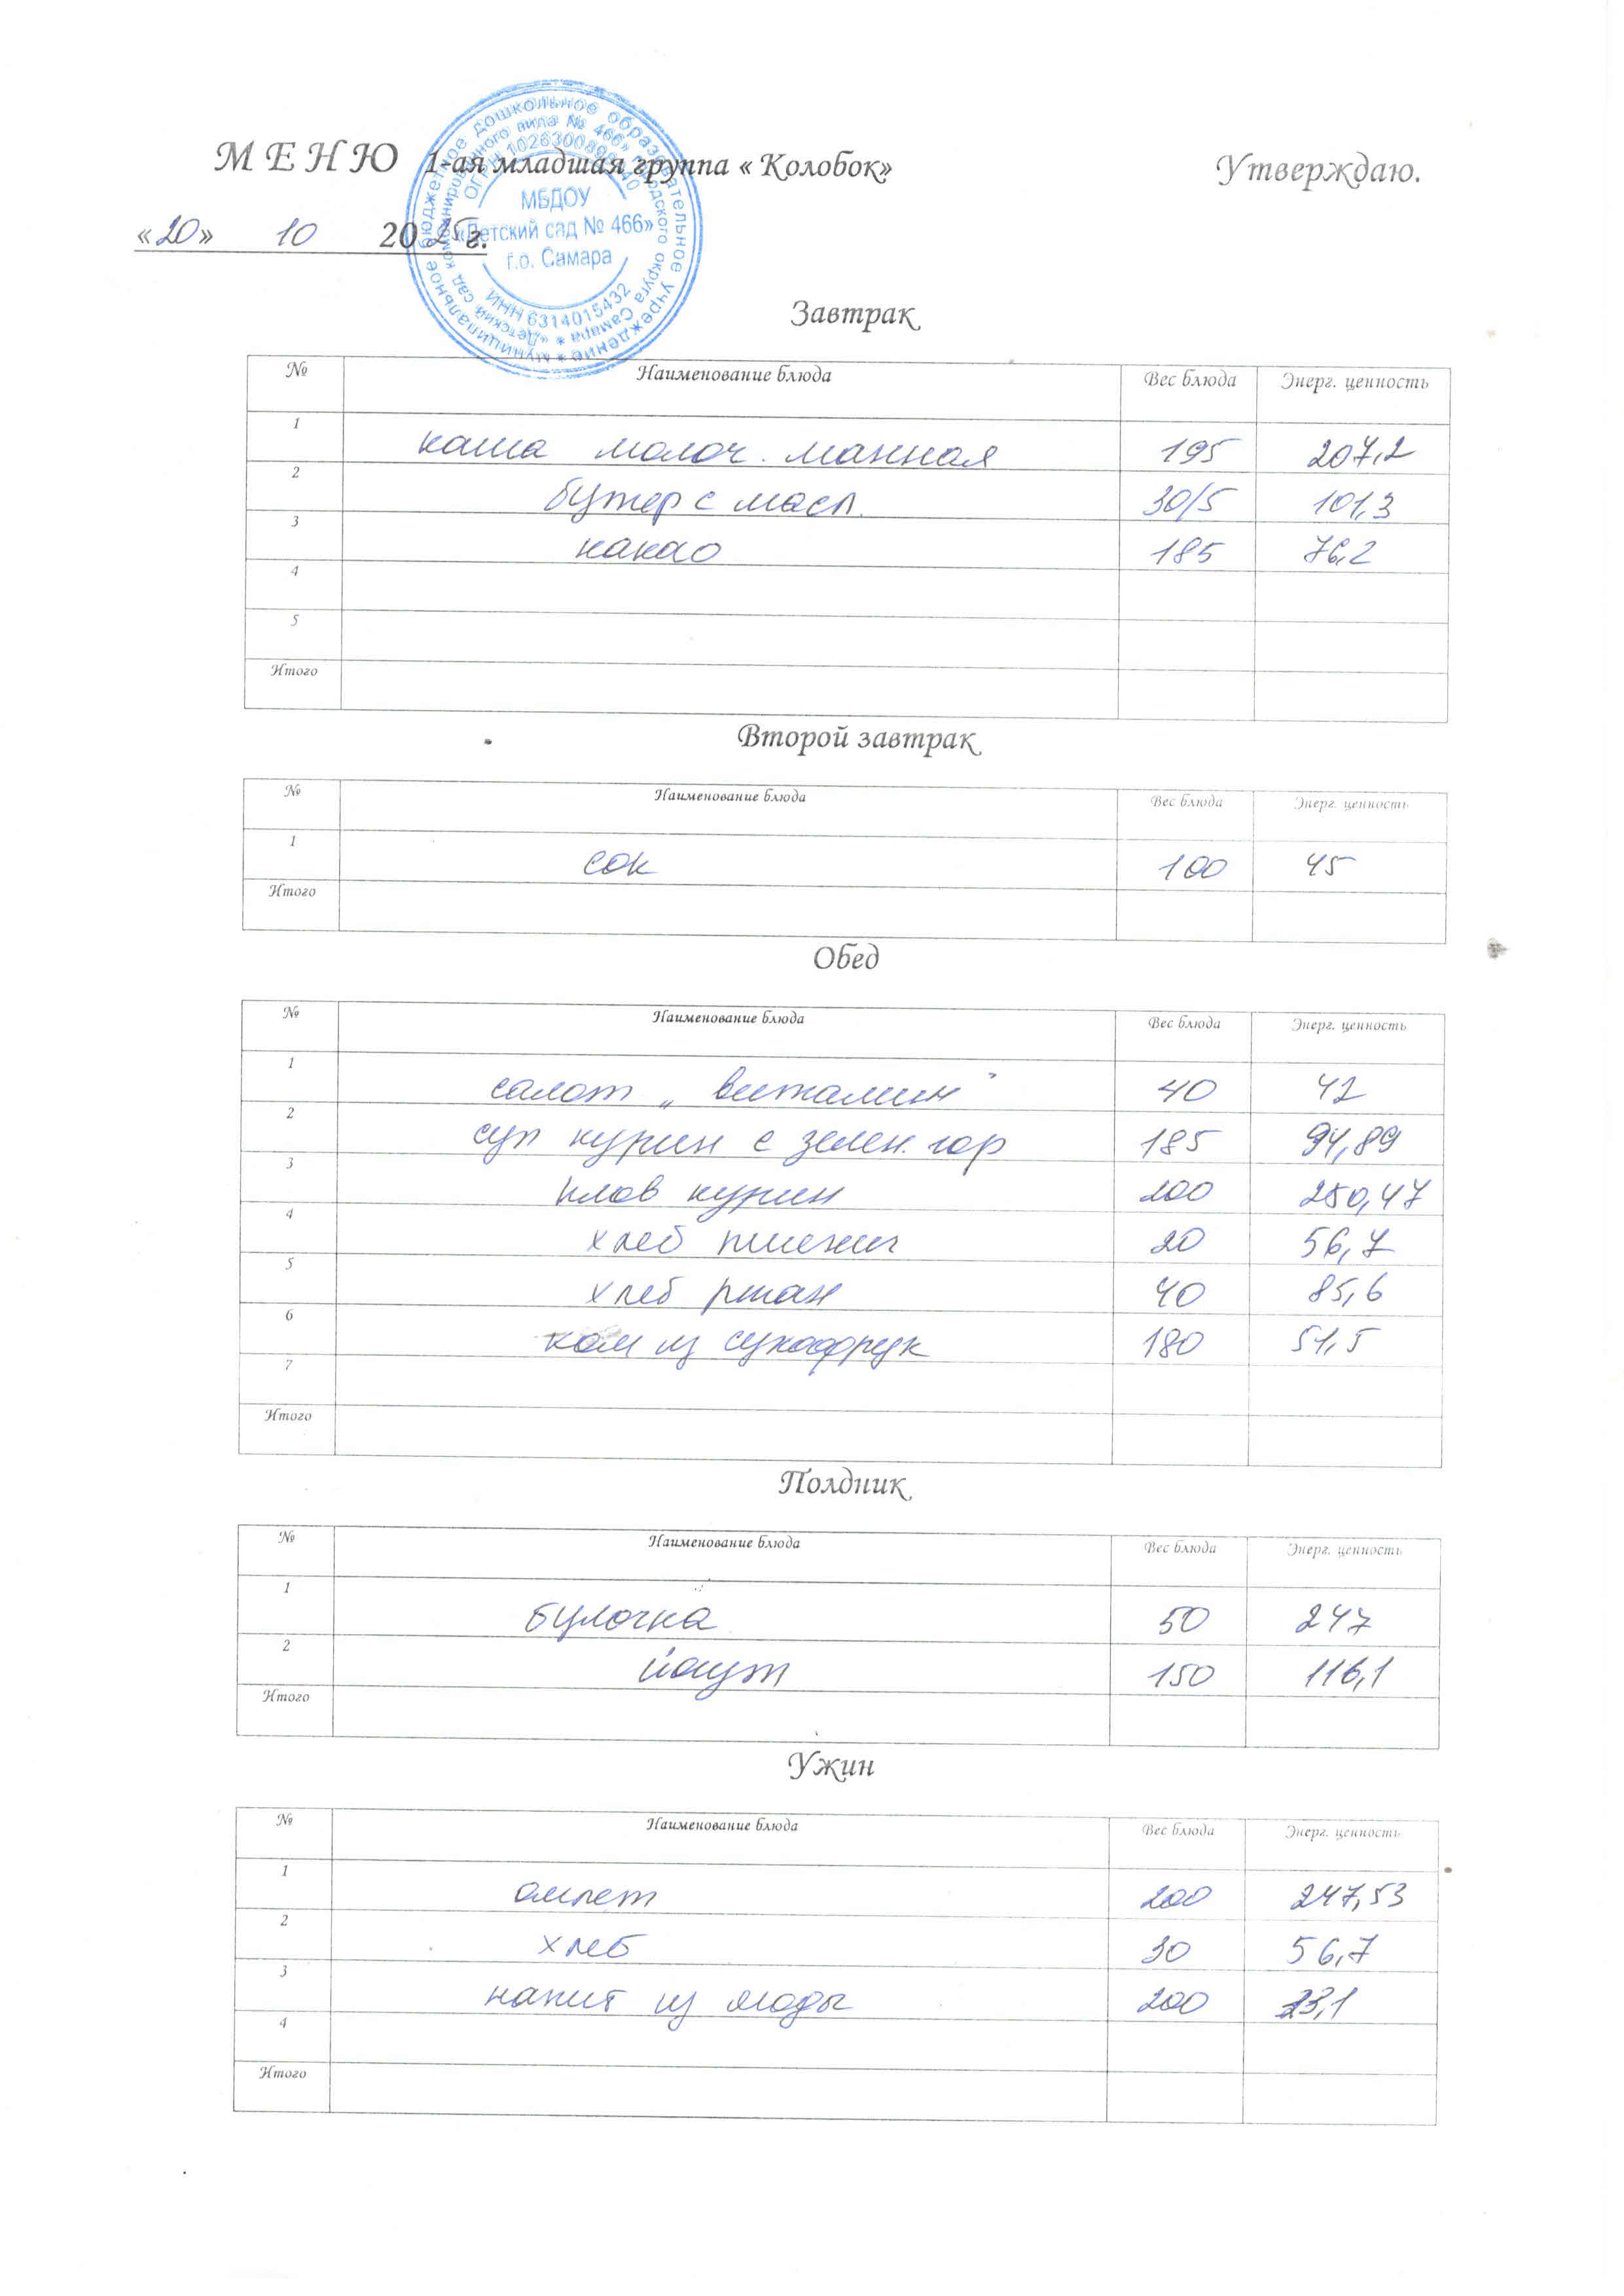 МЕНЮ 1-ая младшая группа « Колобок» Утверждаю.
«20» 10 2025г.
муниципальное бюджетное дошкольное образовательное учреждение
«Детский сад комбинированного вида № 466» городского округа Самара
МБДОУ
«Детский сад № 466»
г.о. Самара
ИНН 6314015432
Завтрак
№ Наименование блюда Вес блюда Энерг. ценность
1 каша молоч. манная 195 207,2
2 бутер с масл. 30/5 101,3
3 какао 185 76,2
4
5
Итого
Второй завтрак
№ Наименование блюда Вес блюда Энерг. ценность
1 сок 100 45
Итого
Обед
№ Наименование блюда Вес блюда Энерг. ценность
1 салат „ витамин" 40 42
2 суп курин с зелен. гор 185 94,89
3 плов курин 200 250,47
4 хлеб пшенич 20 56,7
5 хлеб ржан 40 85,6
6 ком из сухофрук 180 51,5
7
Итого
Полдник
№ Наименование блюда Вес блюда Энерг. ценность
1 булочка 50 247
2 йогурт 150 116,1
Итого
Ужин
№ Наименование блюда Вес блюда Энерг. ценность
1 омлет 200 247,53
2 хлеб 30 56,7
3 напит из ягоды 200 23,1
4
Итого